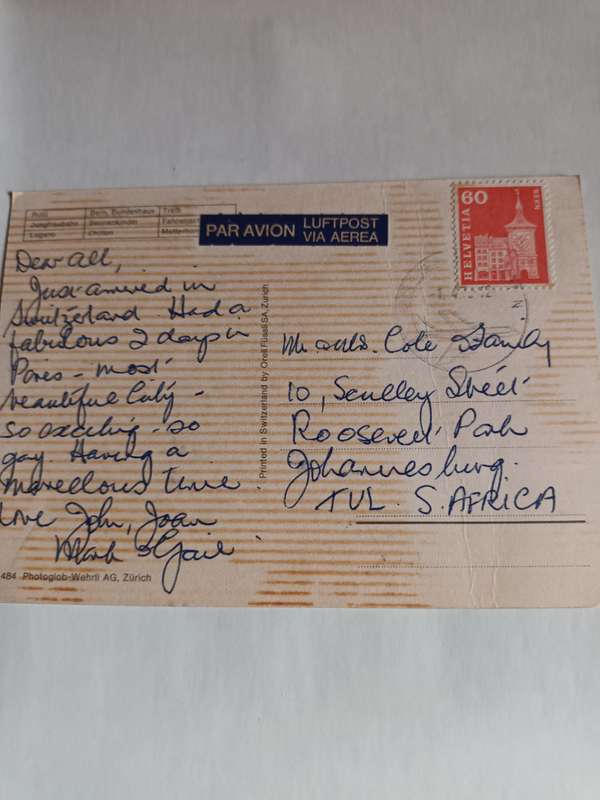 Rütli Bern, Bundeshaus Treib
Lugano Chillon
PAR AVION LUFTPOST
VIA AEREA
60
HELVETIA
BERN
Dear All,
Just arrived in
Switzerland Had a
fabulous 2 days in
Paris - most
beautiful City -
so exciting - so
gay Having a
marvellous time
Love John, Joan
Mark & Gail
Printed in Switzerland by Orell Füssli SA, Zürich
Mr and Mrs. Cole & Family
10, Street
Roosevelt Park
Johannesburg.
TVL. S. AFRICA
484 Photoglob-Wehrli AG, Zürich